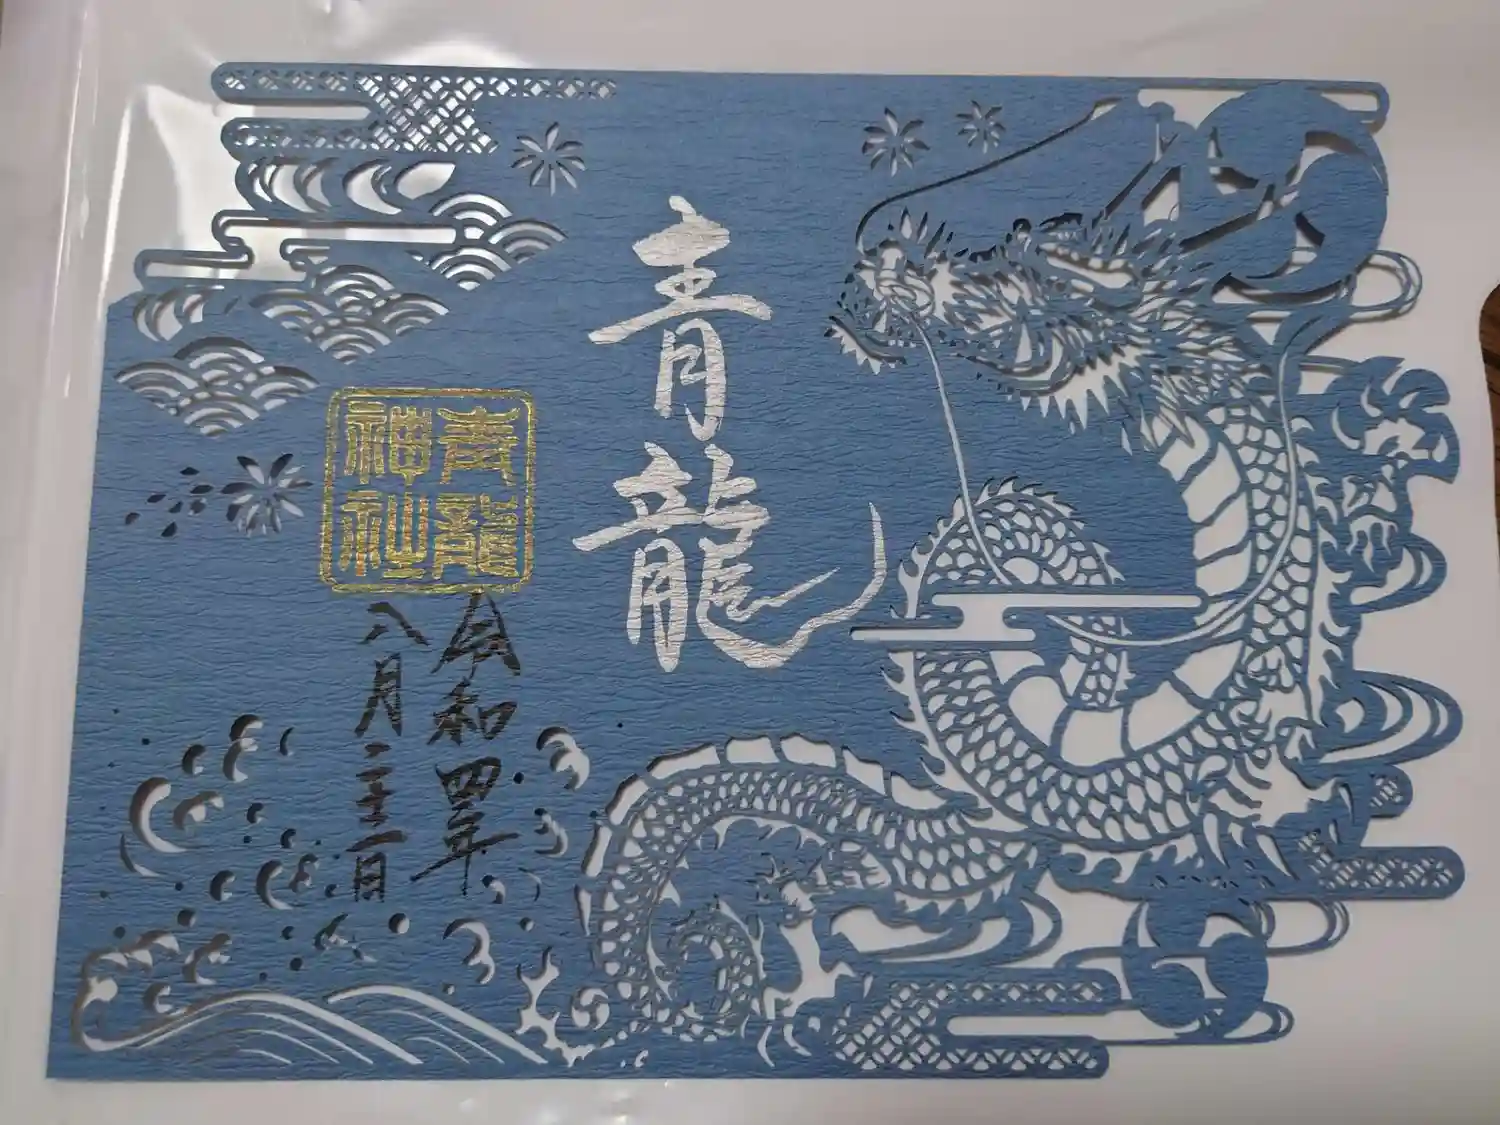 青龍
青龍
神社
令和四年
八月二十二日